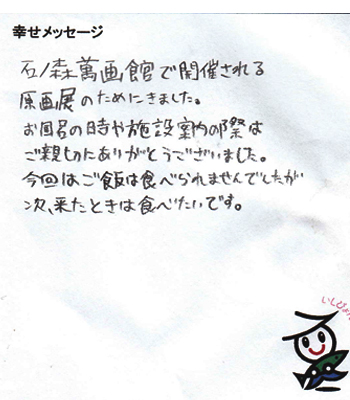 幸せメッセージ
石ノ森萬画館で開催される
原画展のためにきました。
お風呂の時や施設案内の際は
ご親切にありがとうございました。
今回はご飯は食べられませんでしたが
次、来たときは食べたいです。
いしぴょん